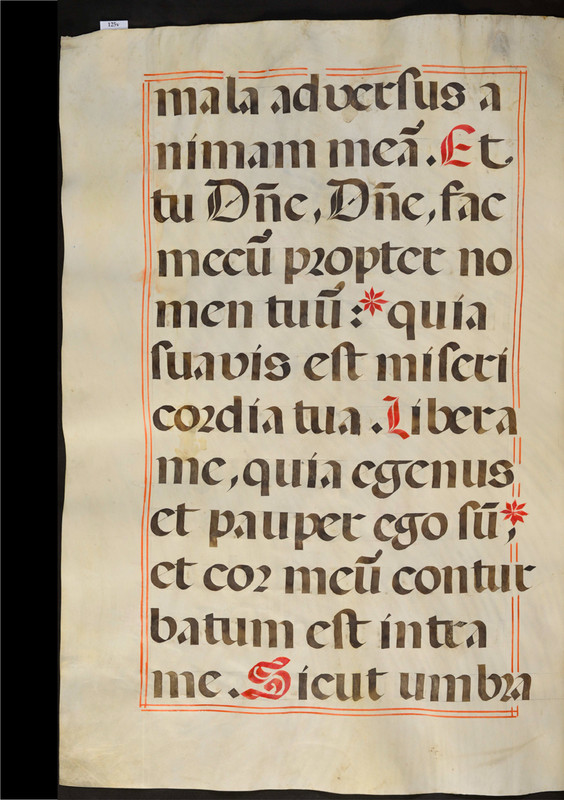 125v
mala adverſus a
nimam meã. Et
tu Dñe, Dñe, fac
mecũ propter no
men tuũ:* quia
ſuavis eſt miſeri
cordia tua. Libera
me, quia egenus
et pauper ego ſũ,*
et cor meũ contur
batum eſt intra
me. Sicut umbra